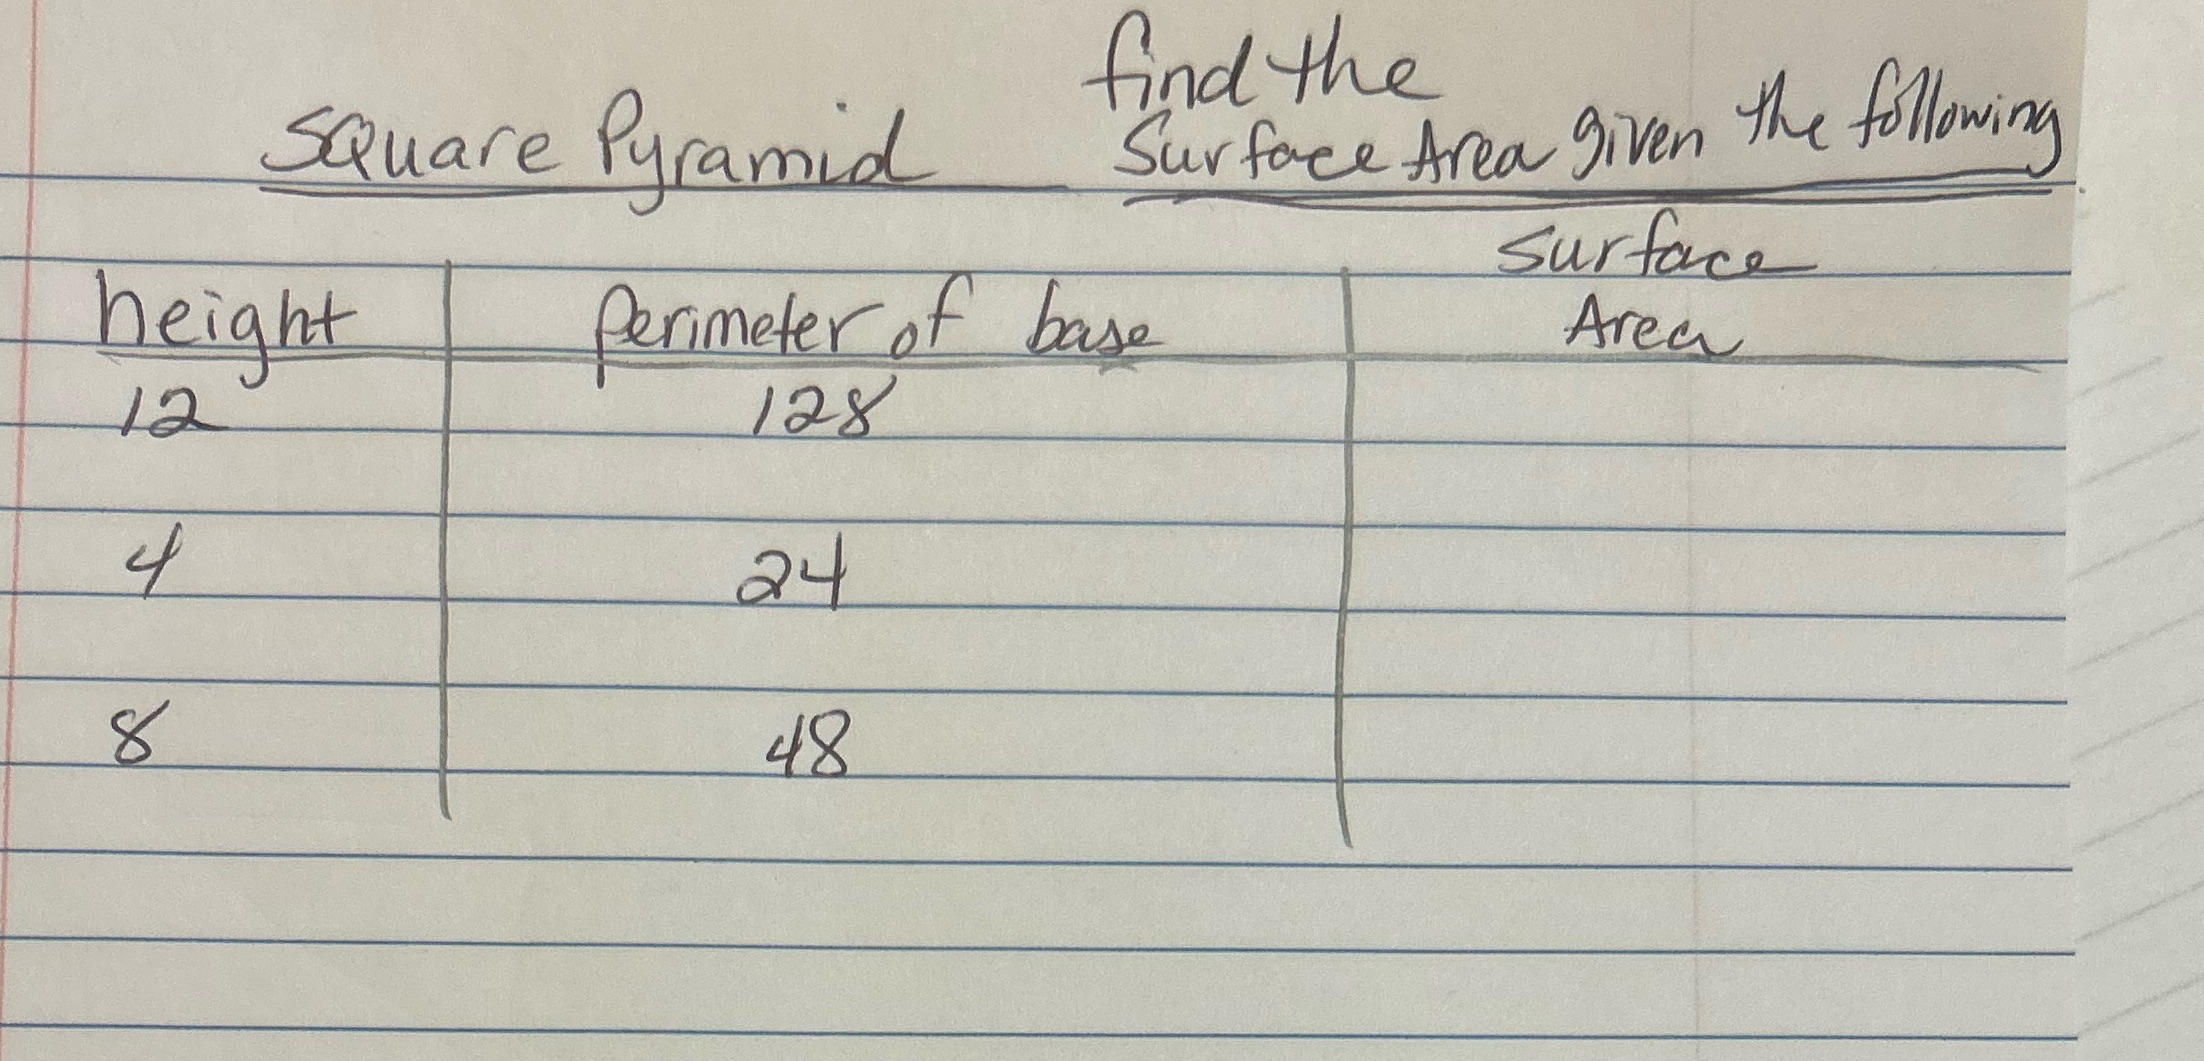 find the
Square Pyramid Surface Area given the following
Surface
height Perimeter of base Area
12 128
4 24
8 48